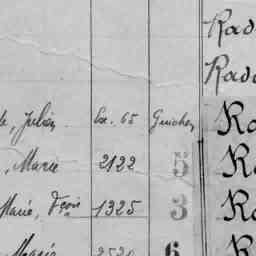 Rad
Rad
le, Julien Ex. 65 Guichen Ra
, Marie 2122 5 Ra
Marie, Fçoise 1325 3 Ra
Marie 2520 6 R